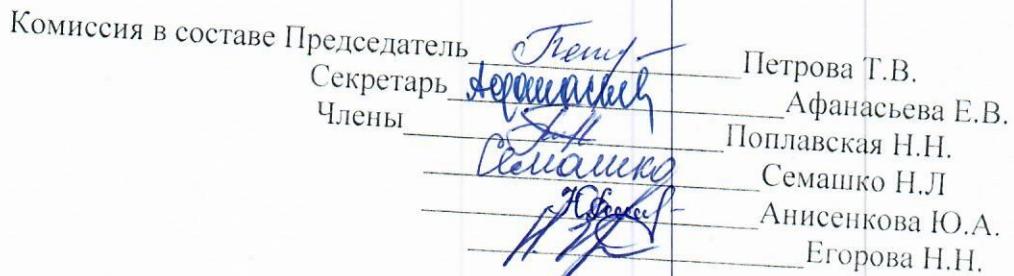 Комиссия в составе Председатель Петрова Т.В.
Секретарь Афанасьев Афанасьева Е.В.
Члены Поплавская Н.Н.
Семашко Семашко Н.Л
Анисенкова Ю.А.
Егорова Н.Н.